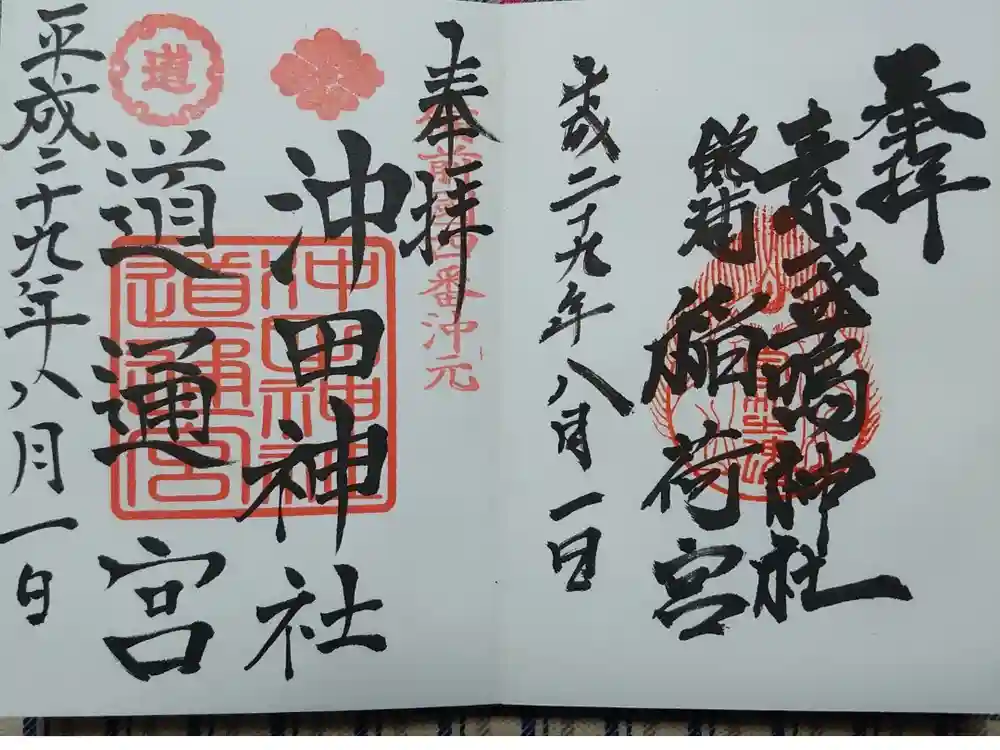 奉拝
素盞嗚神社
稲荷宮
平成二十九年八月一日
奉拝
沖田神社
道通宮
平成二十九年八月一日
道
番沖元
沖田神社
道通宮